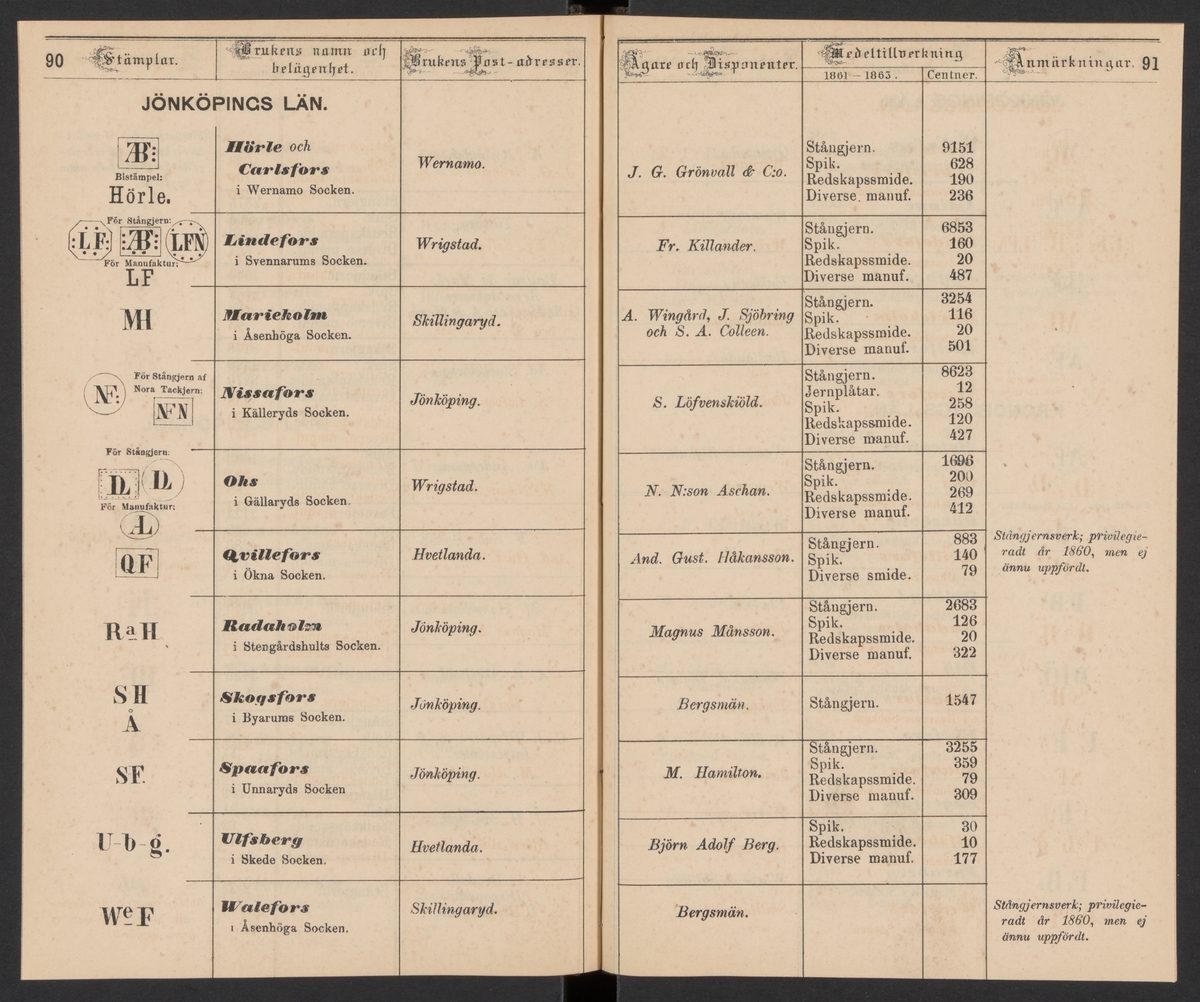 90 Stämplar.
Brukens namn och
belägenhet.
Brukens Post-adresser.
Ägare och Disponenter.
Medeltillverkning
1861-1863. Centner.
Anmärkningar. 91
JÖNKÖPINGS LÄN.
Bistämpel:
Hörle.
Hörle och
Carlsfors
i Wernamo Socken.
Wernamo.
J. G. Grönvall & C:o.
Stångjern. 9151
Spik. 628
Redskapssmide. 190
Diverse manuf. 236
För Stångjern:
:LF: LFN
För Manufaktur:
LF
Lindefors
i Svennarums Socken.
Wrigstad.
Fr. Killander.
Stångjern. 6853
Spik. 160
Redskapssmide. 20
Diverse manuf. 487
MH
Marieholm
i Åsenhöga Socken.
Skillingaryd.
A. Wingård, J. Sjöbring
och S. A. Colleen.
Stångjern. 3254
Spik. 116
Redskapssmide. 20
Diverse manuf. 501
För Stångjern af
Nora Tackjern:
NF:
NFN
Nissafors
i Källeryds Socken.
Jönköping.
S. Löfvenskiöld.
Stångjern. 8623
Jernplåtar. 12
Spik. 258
Redskapssmide. 120
Diverse manuf. 427
För Stångjern:
För Manufaktur:
Ohs
i Gällaryds Socken.
Wrigstad.
N. N:son Aschan.
Stångjern. 1696
Spik. 200
Redskapssmide. 269
Diverse manuf. 412
QF
Qvillefors
i Ökna Socken.
Hvetlanda.
And. Gust. Håkansson.
Stångjern. 883
Spik. 140
Diverse smide. 79
Stångjernsverk; privilegie-
radt år 1860, men ej
ännu uppfördt.
RaH
Radaholm
i Stengårdshults Socken.
Jönköping.
Magnus Månsson.
Stångjern. 2683
Spik. 126
Redskapssmide. 20
Diverse manuf. 322
SH
Å
Skogsfors
i Byarums Socken.
Jönköping.
Bergsmän.
Stångjern. 1547
SF.
Spaafors
i Unnaryds Socken
Jönköping.
M. Hamilton.
Stångjern. 3255
Spik. 359
Redskapssmide. 79
Diverse manuf. 309
U-b-g.
Ulfsberg
i Skede Socken.
Hvetlanda.
Björn Adolf Berg.
Spik. 30
Redskapssmide. 10
Diverse manuf. 177
WeF
Walefors
i Åsenhöga Socken.
Skillingaryd.
Bergsmän.
Stångjernsverk; privilegie-
radt år 1860, men ej
ännu uppfördt.